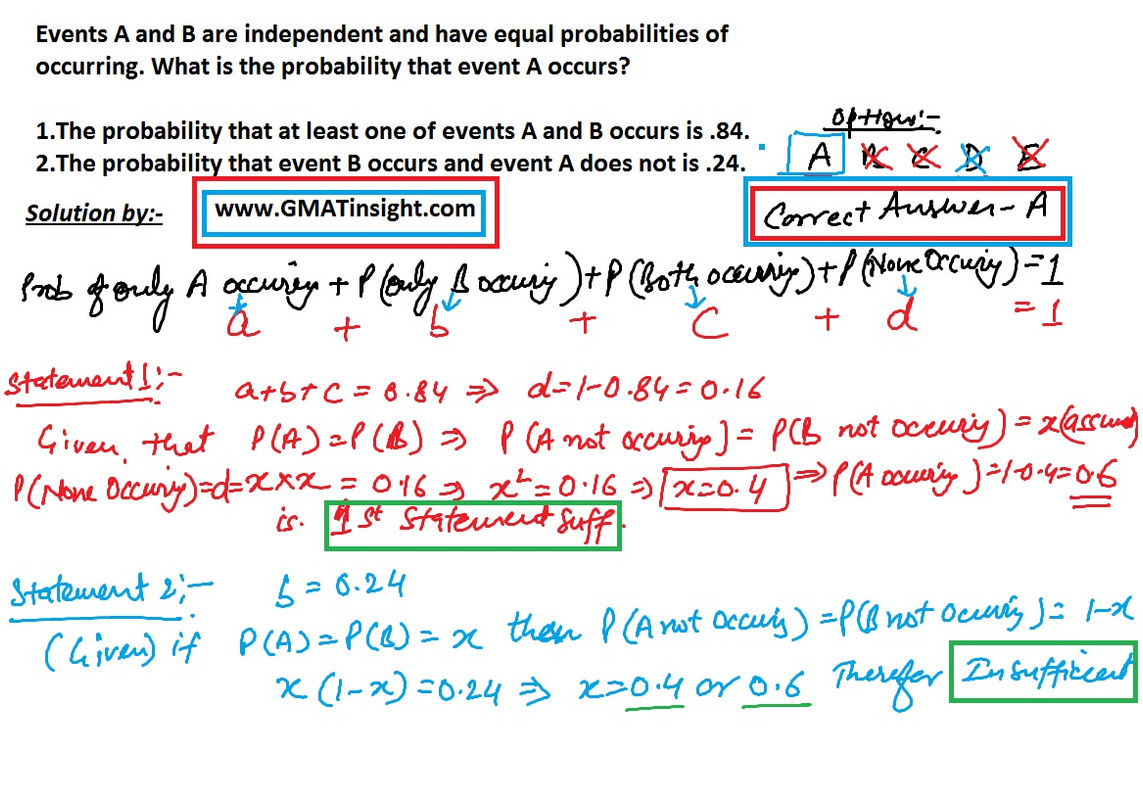 Events A and B are independent and have equal probabilities of
occurring. What is the probability that event A occurs?
1.The probability that at least one of events A and B occurs is .84.
2.The probability that event B occurs and event A does not is .24.
Option:-
A B C D E
Solution by:- www.GMATinsight.com
Correct Answer - A
Prob of only A occuring + P(only B occuring) + P(Both occuring) + P(None Occuring) = 1
a + b + c + d = 1
Statement 1:- a+b+c = 0.84 ⇒ d=1-0.84=0.16
Given, that P(A)=P(B) ⇒ P(A not occuring) = P(B not occuring) = x(assume)
P(None Occuring)=d=x×x = 0.16 ⇒ x²=0.16 ⇒ x=0.4 ⇒ P(A occuring)=1-0.4=0.6
is. 1st Statement Suff.
Statement 2:- b = 0.24
(Given) if P(A)=P(B)=x then P(A not occuring)=P(B not occuring)= 1-x
x(1-x)=0.24 ⇒ x=0.4 or 0.6 Therefer Insufficient